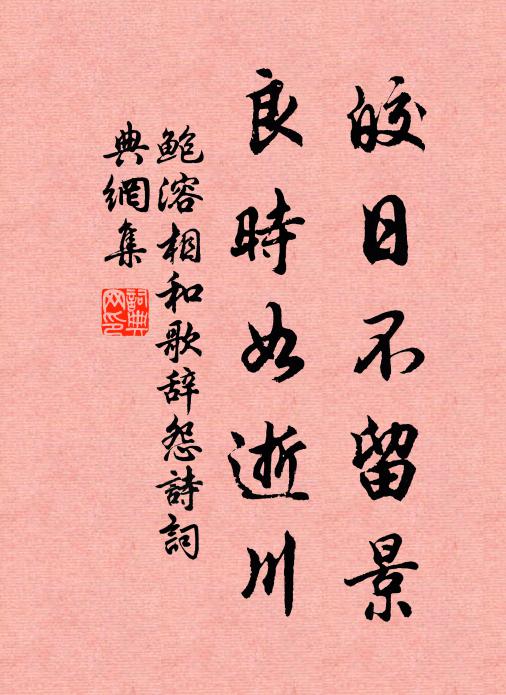 皎日不留景
良時如逝川
鲍溶相和歌辞怨詩詞
典網集
詞典网印